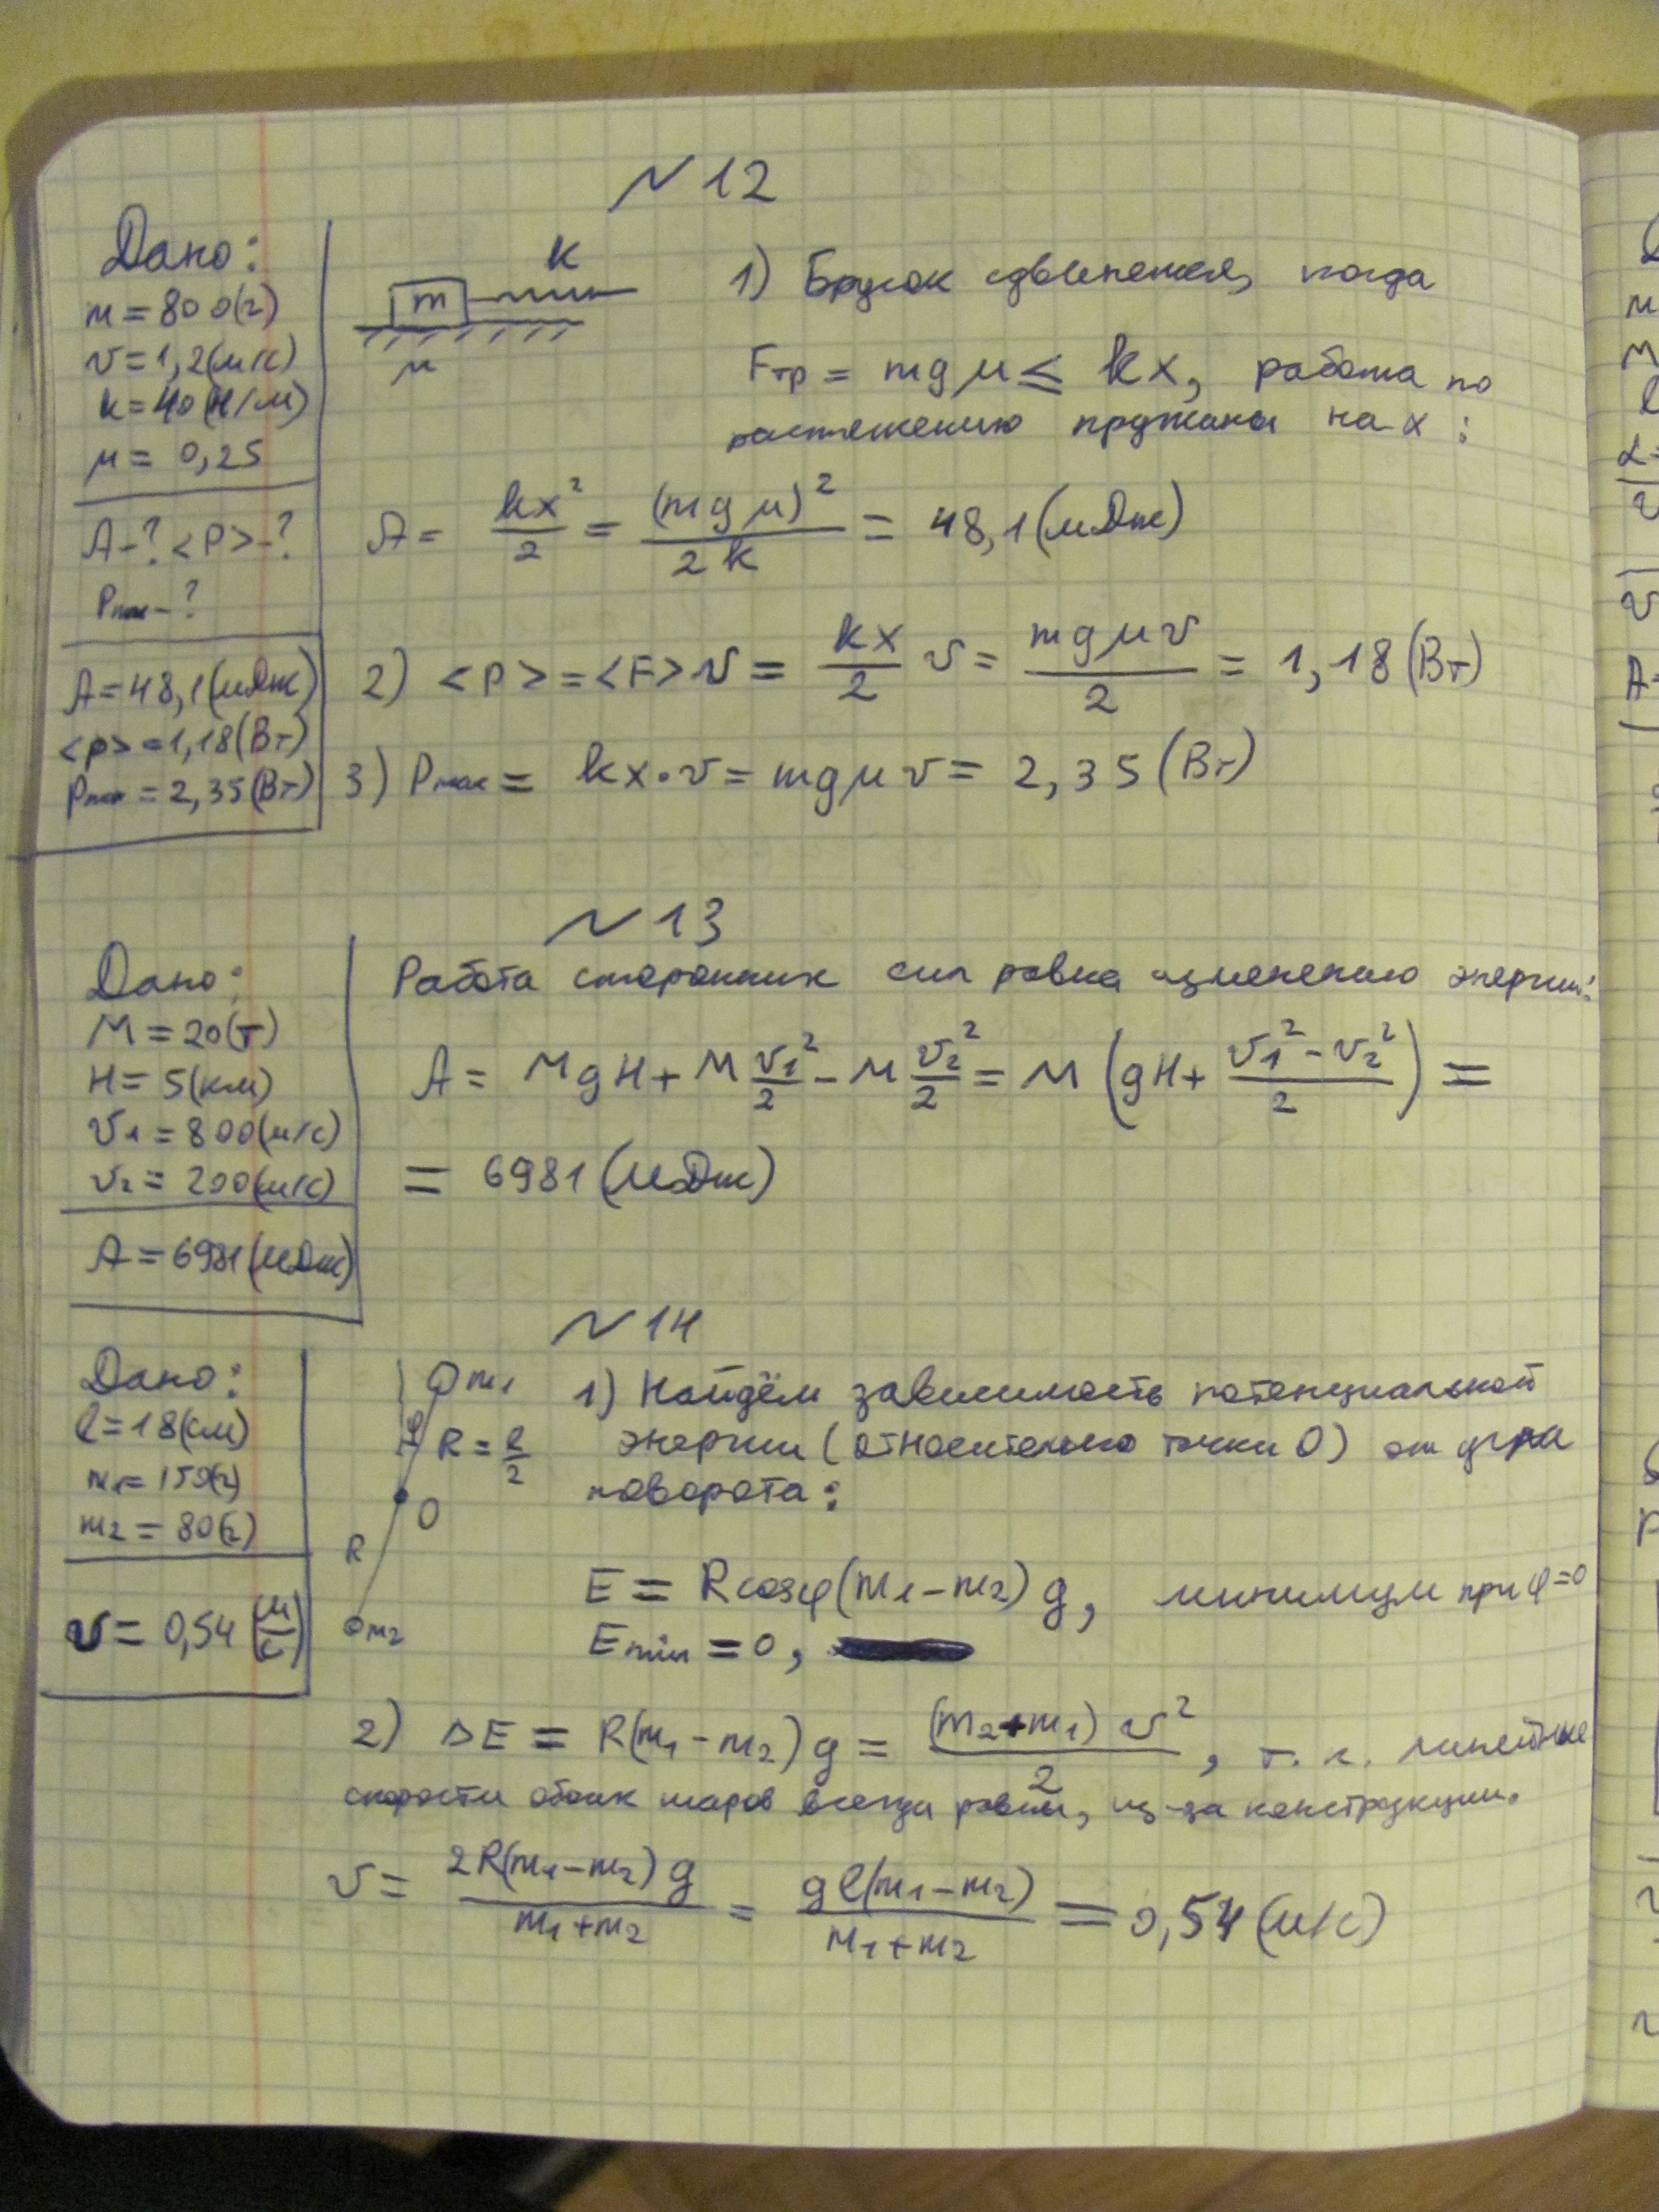 №12
Дано:
m = 800(г)
v = 1,2(м/с)
k = 40(Н/м)
μ = 0,25
A-? <P>-?
Pmax-?
A = 48,1(мДж)
<P> = 1,18(Вт)
Pmax = 2,35(Вт)
k
m
μ
1) Брусок сдвинется, когда
Fтр = mgμ ≤ kx, работа по
растяжению пружины на x:
A = kx²/2 = (mgμ)²/2k = 48,1(мДж)
2) <P> = <F>v = kx/2 v = mgμv/2 = 1,18(Вт)
3) Pmax = kx·v = mgμv = 2,35(Вт)
№13
Дано:
M = 20(т)
H = 5(км)
v1 = 800(м/с)
v2 = 200(м/с)
A = 6981(МДж)
Работа сторонних сил равна изменению энергии:
A = MgH + M v1²/2 - M v2²/2 = M (gH + (v1² - v2²)/2) =
= 6981(МДж)
№14
Дано:
l = 18(см)
m1 = 150(г)
m2 = 80(г)
v = 0,54 (м/с)
m1
φ
R = l/2
O
R
m2
1) Найдём зависимость потенциальной
энергии (относительно точки O) от угла
поворота:
E = Rcosφ(m1 - m2)g, минимум при φ=0
Emin = 0,
2) ΔE = R(m1 - m2)g = (m2 + m1)v²/2, т. к. линейные
скорости обоих шаров всегда равны, из-за конструкции.
v = 2R(m1 - m2)g/(m1 + m2) = gl(m1 - m2)/(m1 + m2) = 0,54(м/с)